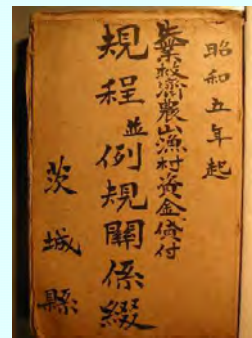 昭和五年起
失業救済農山漁村資金貸付
規程並例規関係綴
茨城縣